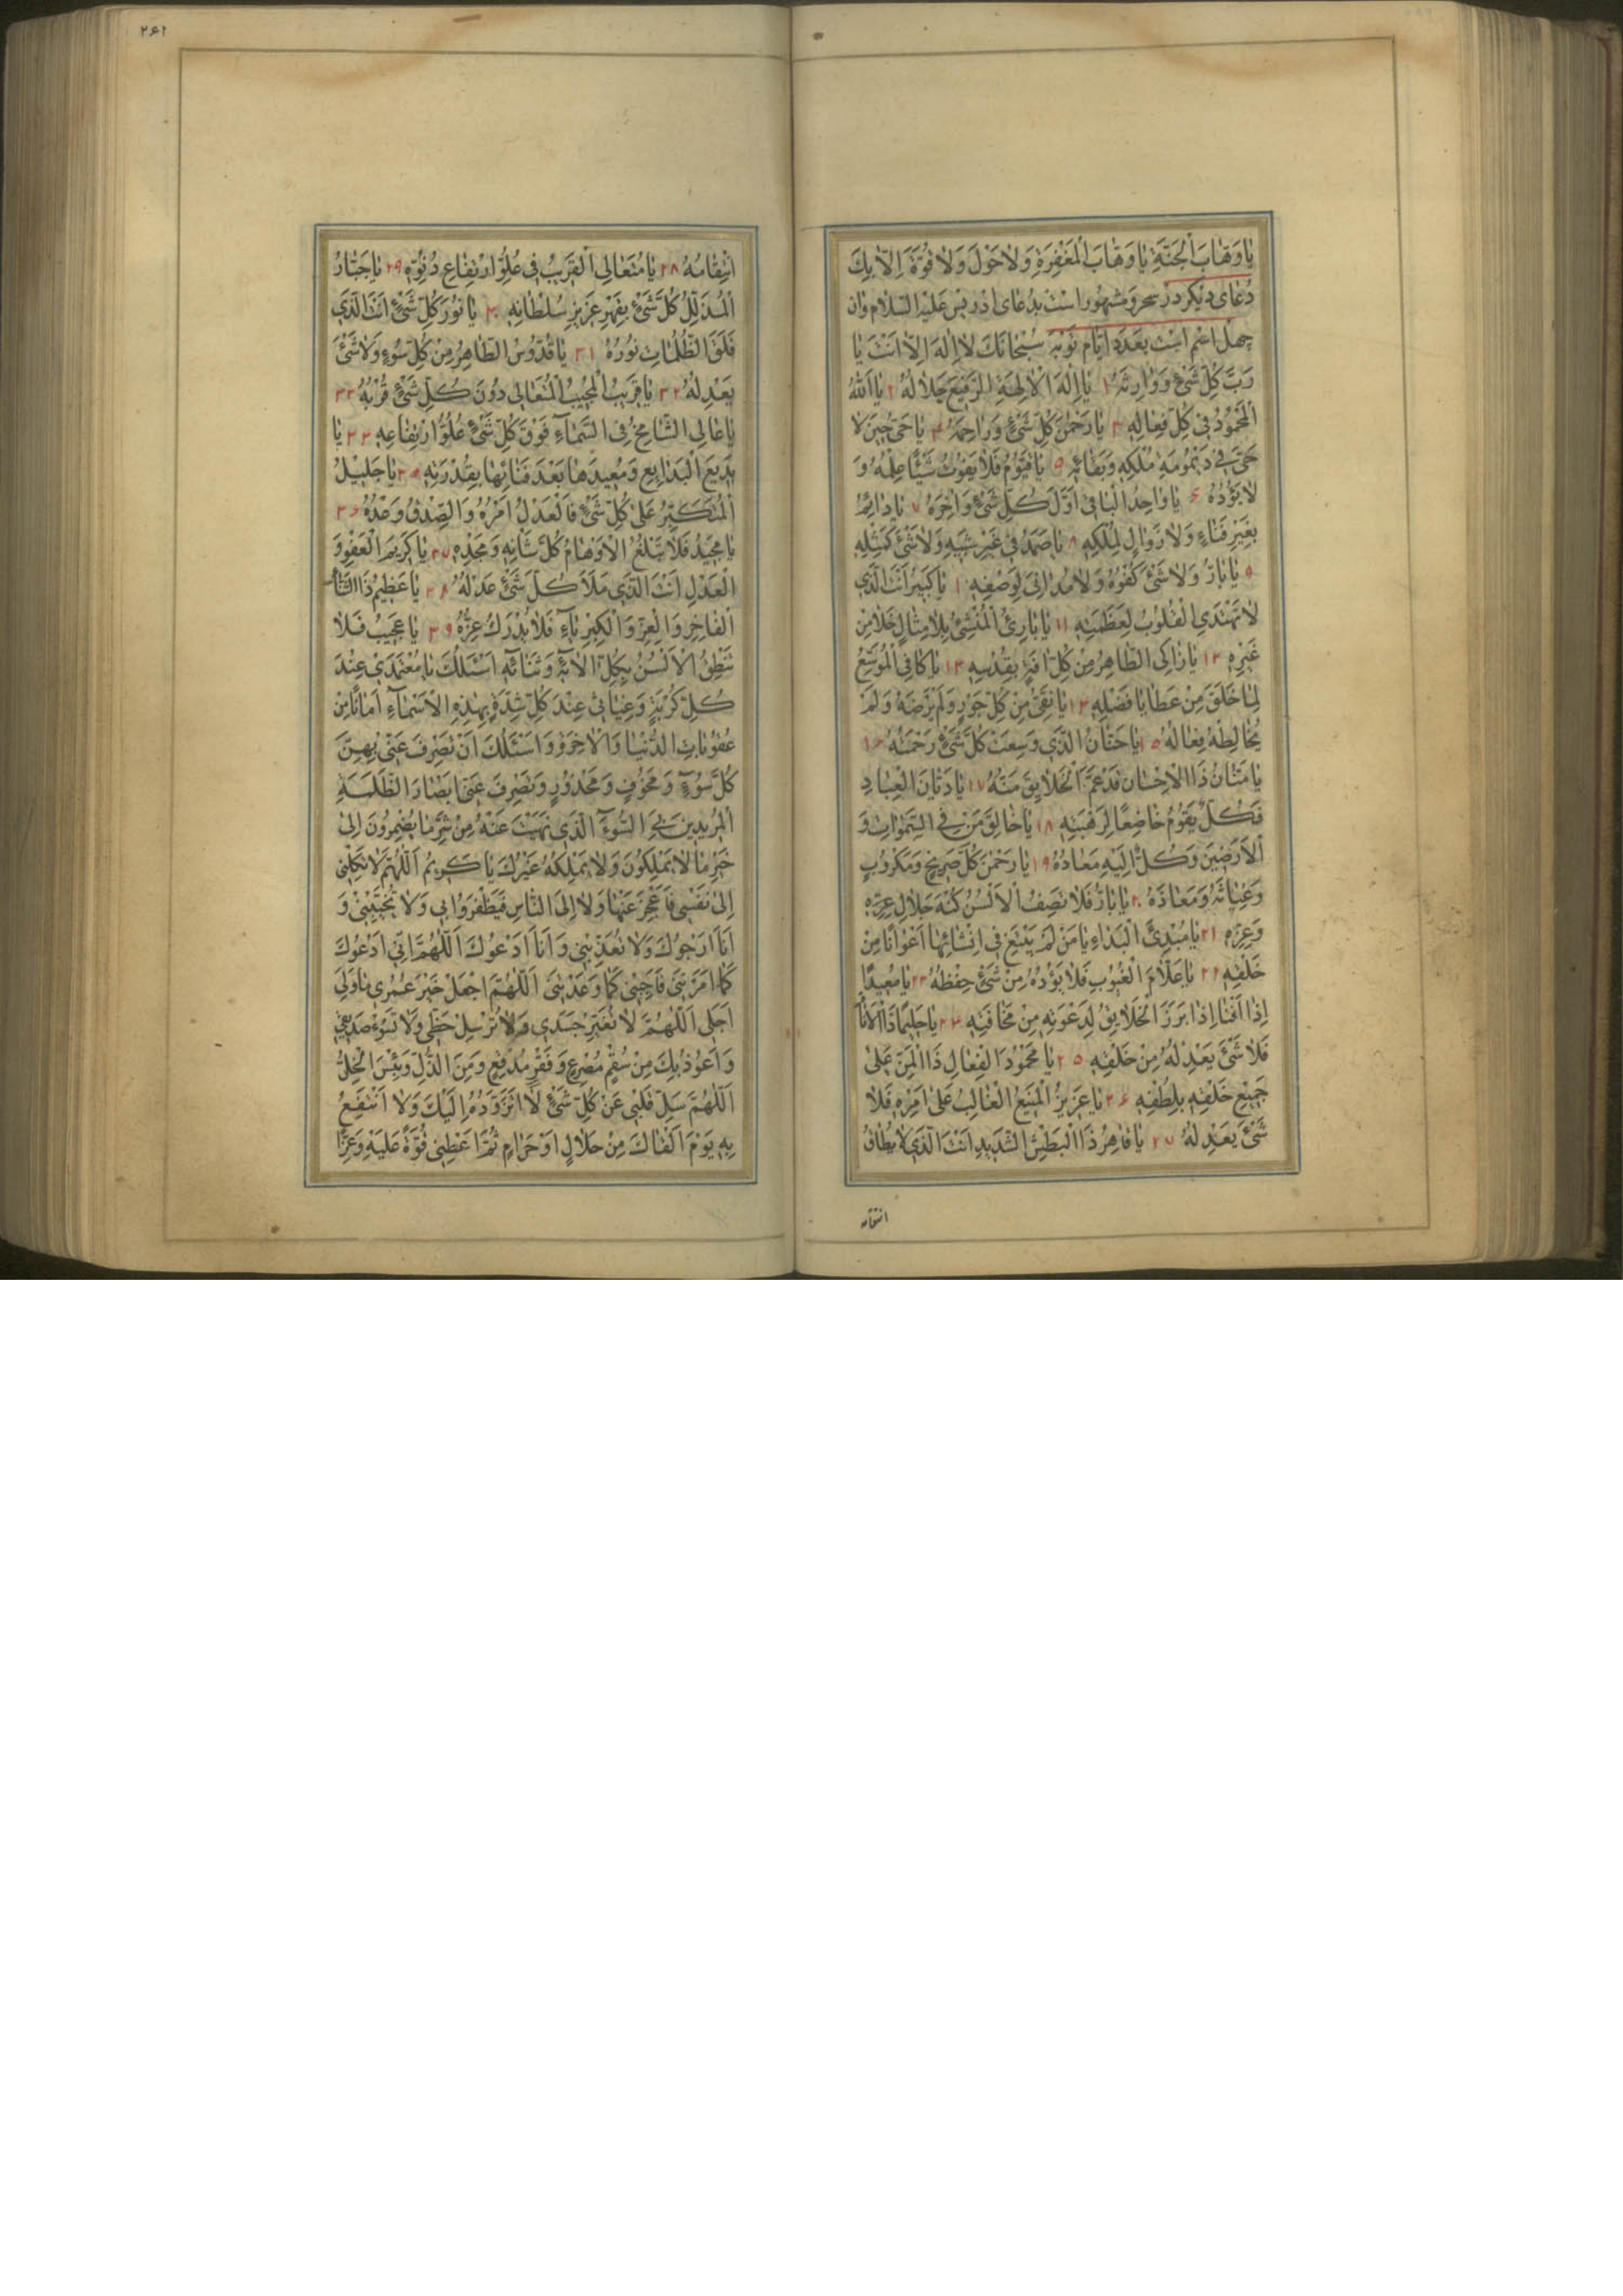 يا وَهّابَ الْجَنَّةِ يا وَهّابَ الْمَغْفِرَةِ وَلا حَوْلَ وَلا قُوَّةَ اِلّا بِكَ
دُعاى ديكر در سحر و مشهور است بدُعاى ادريس عليه السّلام وان
چهل اسم است بعدد ايّام توبه سُبْحانَكَ لا اِلهَ اِلّا اَنْتَ يا
رَبَّ كُلِّ شَئٍ وَوارِثَهُ ۱ يا اِلهَ الْالِهَةِ الرَّفيعَ جَلالُهُ ۲ يا اَللّهُ
الْمَحْمُودُ في كُلِّ فِعالِهِ ۳ يا رَحْمنَ كُلِّ شَئٍ وَراحِمَهُ ۴ يا حَيُّ حينَ لا
حَيَّ في دَيْمُومَةِ مُلْكِهِ وَبَقائِهِ ۵ يا قَيُّومُ فَلا يَفُوتُ شَيْئًا عِلْمُهُ وَ
لا يَؤُدُهُ ۶ يا واحِدُ الْباقي اَوَّلَ كُلِّ شَئٍ وَاخِرَهُ ۷ يا دائِمُ
بِغَيْرِ فَناءٍ وَلا زَوالٍ لِمُلْكِهِ ۸ يا صَمَدُ في غَيْرِ شَبَهٍ وَلا شَئَ كَمِثْلِهِ
۹ يا بارُّ وَلا شَئَ كُفْوُهُ وَلا مُدانِيَ لِوَصْفِهِ ۱۰ يا كَبيرُ اَنْتَ الَّذي
لا تَهْتَدِي الْقُلُوبُ لِعَظَمَتِهِ ۱۱ يا بارِئُ الْمُنْشِئُ بِلا مِثالٍ خَلا مِنْ
غَيْرِهِ ۱۲ يا زاكِي الطّاهِرُ مِنْ كُلِّ افَةٍ بِقُدْسِهِ ۱۳ يا كافِي الْمُوَسِّعُ
لِما خَلَقَ مِنْ عَطايا فَضْلِهِ ۱۴ يا نَقِيُّ مِنْ كُلِّ جَوْرٍ وَلَمْ يَرْضَهُ وَلَمْ
يُخالِطْهُ فِعالُهُ ۱۵ يا حَنّانُ الَّذي وَسِعَتْ كُلَّ شَئٍ رَحْمَتُهُ ۱۶
يا مَنّانُ ذَا الْاِحْسانِ قَدْ عَمَّ الْخَلايِقَ مَنُّهُ ۱۷ يا دَيّانَ الْعِبادِ
فَكُلٌّ يَقُومُ خاضِعًا لِرَهْبَتِهِ ۱۸ يا خالِقَ مَنْ فِي السَّمواتِ وَ
الْاَرَضينَ وَكُلٌّ اِلَيْهِ مَعادُهُ ۱۹ يا رَحْمنَ كُلِّ صَريخٍ وَمَكْرُوبٍ
وَغِياثَهُ وَمَعاذَهُ ۲۰ يا بارُّ فَلا تَصِفُ الْاَلْسُنُ كُنْهَ جَلالِ عِزِّهِ
وَعِزِّهِ ۲۱ يا مُبْدِئَ الْبَداءِ يا مَنْ لَمْ يَبْتَغِ في اِنْشائِها اَعْوانًا مِنْ
خَلْقِهِ ۲۲ يا عَلّامَ الْغُيُوبِ فَلا يَؤُدُهُ مِنْ شَئٍ حِفْظُهُ ۲۳ يا مُعيدًا
اِذا اَفْنا اِذا بَرَزَ الْخَلايِقُ لِدَعْوَتِهِ مِنْ مَخافَتِهِ ۲۴ يا حَليمًا ذَا الْاَناةِ
فَلا شَئَ يَعْدِلُهُ مِنْ خَلْقِهِ ۲۵ يا مَحْمُودَ الْفِعالِ ذَا الْمَنِّ عَلى
جَميعِ خَلْقِهِ بِلُطْفِهِ ۲۶ يا عَزيزُ الْمَنيعُ الْغالِبُ عَلى اَمْرِهِ فَلا
شَئَ يَعْدِلُهُ ۲۷ يا قاهِرُ ذَا الْبَطْشِ الشَّديدِ اَنْتَ الَّذي لا يُطاقُ
انتقامه
۲۶۱
انْتِقامُهُ ۲۸ يا مُتَعالِي الْقَريبُ في عُلُوِّ ارْتِفاعِ دُنُوِّهِ ۲۹ يا جَبّارُ
الْمُذَلِّلُ كُلَّ شَئٍ بِقَهْرِ عَزيزِ سُلْطانِهِ ۳۰ يا نُورَ كُلِّ شَئٍ اَنْتَ الَّذي
فَلَقَ الظُّلُماتِ نُورُهُ ۳۱ يا قُدُّوسُ الطّاهِرُ مِنْ كُلِّ سُوءٍ وَلا شَئَ
يَعْدِلُهُ ۳۲ يا قَريبُ الْمُجيبُ الْمُتَعالي دُونَ كُلِّ شَئٍ قُرْبُهُ ۳۳
يا عالِي الشّامِخُ فِي السَّماءِ فَوْقَ كُلِّ شَئٍ عُلُوُّ ارْتِفاعِهِ ۳۴ يا
بَديعَ الْبَدايِعِ وَمُعيدَها بَعْدَ فَنائِها بِقُدْرَتِهِ ۳۵ يا جَليلُ
الْمُتَكَبِّرُ عَلى كُلِّ شَئٍ فَالْعَدْلُ اَمْرُهُ وَالصِّدْقُ وَعْدُهُ ۳۶
يا مَجيدُ فَلا تَبْلُغُ الْاَوْهامُ كُلَّ شَأْنِهِ وَمَجْدِهِ ۳۷ يا كَريمَ الْعَفْوِ وَ
الْعَدْلِ اَنْتَ الَّذي مَلَأَ كُلَّ شَئٍ عَدْلُهُ ۳۸ يا عَظيمُ ذَا الثَّناءِ
الْفاخِرِ وَالْعِزِّ وَالْكِبْرِياءِ فَلا يُدْرَكُ عِزُّهُ ۳۹ يا عَجيبُ فَلا
تَنْطِقُ الْاَلْسُنُ بِكُلِّ الائِهِ وَثَنائِهِ اَسْئَلُكَ يا مُعْتَمَدي عِنْدَ
كُلِّ كُرْبَةٍ وَغِياثي عِنْدَ كُلِّ شِدَّةٍ بِهذِهِ الْاَسْماءِ اَمانًا مِنْ
عُقُوباتِ الدُّنْيا وَالْاخِرَةِ وَاَسْئَلُكَ اَنْ تَصْرِفَ عَنّي بِهِنَّ
كُلَّ سُوءٍ وَمَخُوفٍ وَمَحْذُورٍ وَتَصْرِفَ عَنّي اَبْصارَ الظَّلَمَةِ
الْمُريدينَ بِيَ السُّوءَ الَّذي نَهَيْتَ عَنْهُ مِنْ شَرِّ ما يُضْمِرُونَ اِلى
خَيْرِ ما لا يَمْلِكُونَ وَلا يَمْلِكُهُ غَيْرُكَ يا كَريمُ اَللّهُمَّ لا تَكِلْني
اِلى نَفْسي فَاَعْجِزَ عَنْها وَلا اِلَى النّاسِ فَيَظْفَرُوا بي وَلا تُخَيِّبْني وَ
اَنَا اَرْجُوكَ وَلا تُعَذِّبْني وَاَنَا اَدْعُوكَ اَللّهُمَّ اِنّي اَدْعُوكَ
كَما اَمَرْتَني فَاَجِبْني كَما وَعَدْتَني اَللّهُمَّ اجْعَلْ خَيْرَ عُمُري ما وَلِيَ
اَجَلي اَللّهُمَّ لا تُغَيِّرْ جَسَدي وَلا تُرْسِلْ حَظّي وَلا تَسُوءْ صَديقي
وَاَعُوذُ بِكَ مِنْ سُقْمٍ مُصْرِعٍ وَفَقْرٍ مُدْقِعٍ وَمِنَ الذُّلِّ وَبِئْسَ الْخِلُّ
اَللّهُمَّ سَلِّ قَلْبي عَنْ كُلِّ شَئٍ لا اَتَزَوَّدُهُ اِلَيْكَ وَلا اَنْتَفِعُ
بِهِ يَوْمَ اَلْقاكَ مِنْ حَلالٍ اَوْ حَرامٍ ثُمَّ اَعْطِني قُوَّةً عَلَيْهِ وَعِزًّا